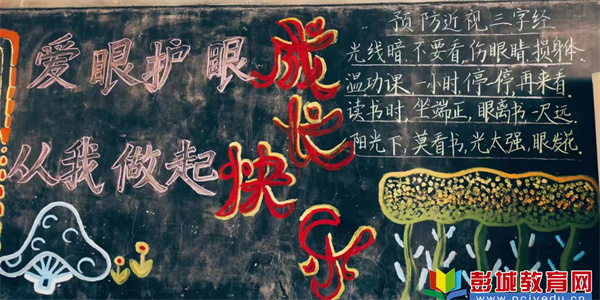 爱眼护眼
从我做起
成长
快乐
预防近视三字经
光线暗,不要看,伤眼睛,损身体.
温功课,一小时,停一停,再来看.
读书时,坐端正,眼离书一尺远.
阳光下,莫看书,光太强,眼发花.
彭城教育网
www.pcjyedu.cn